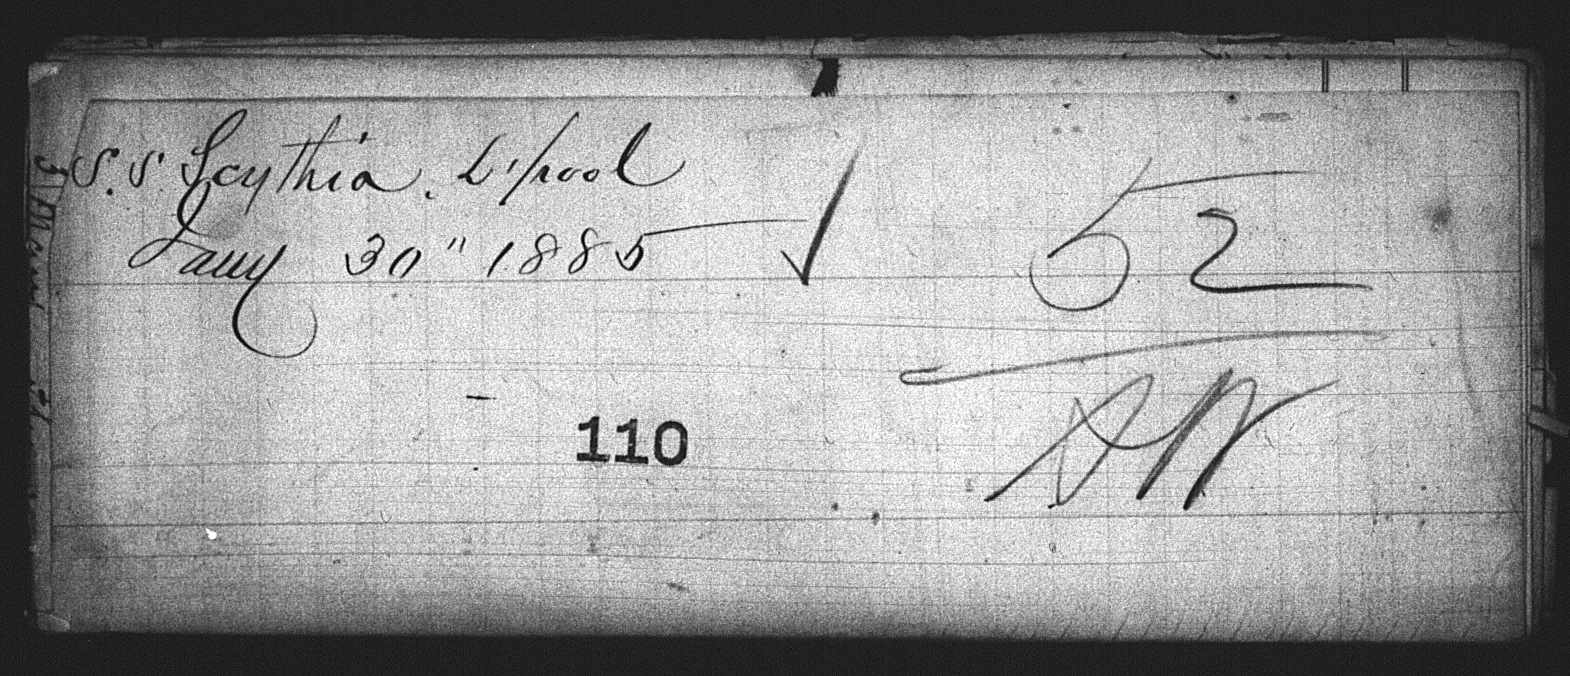 S. S. Scythia. L'pool
Jany 30" 1885
52
110